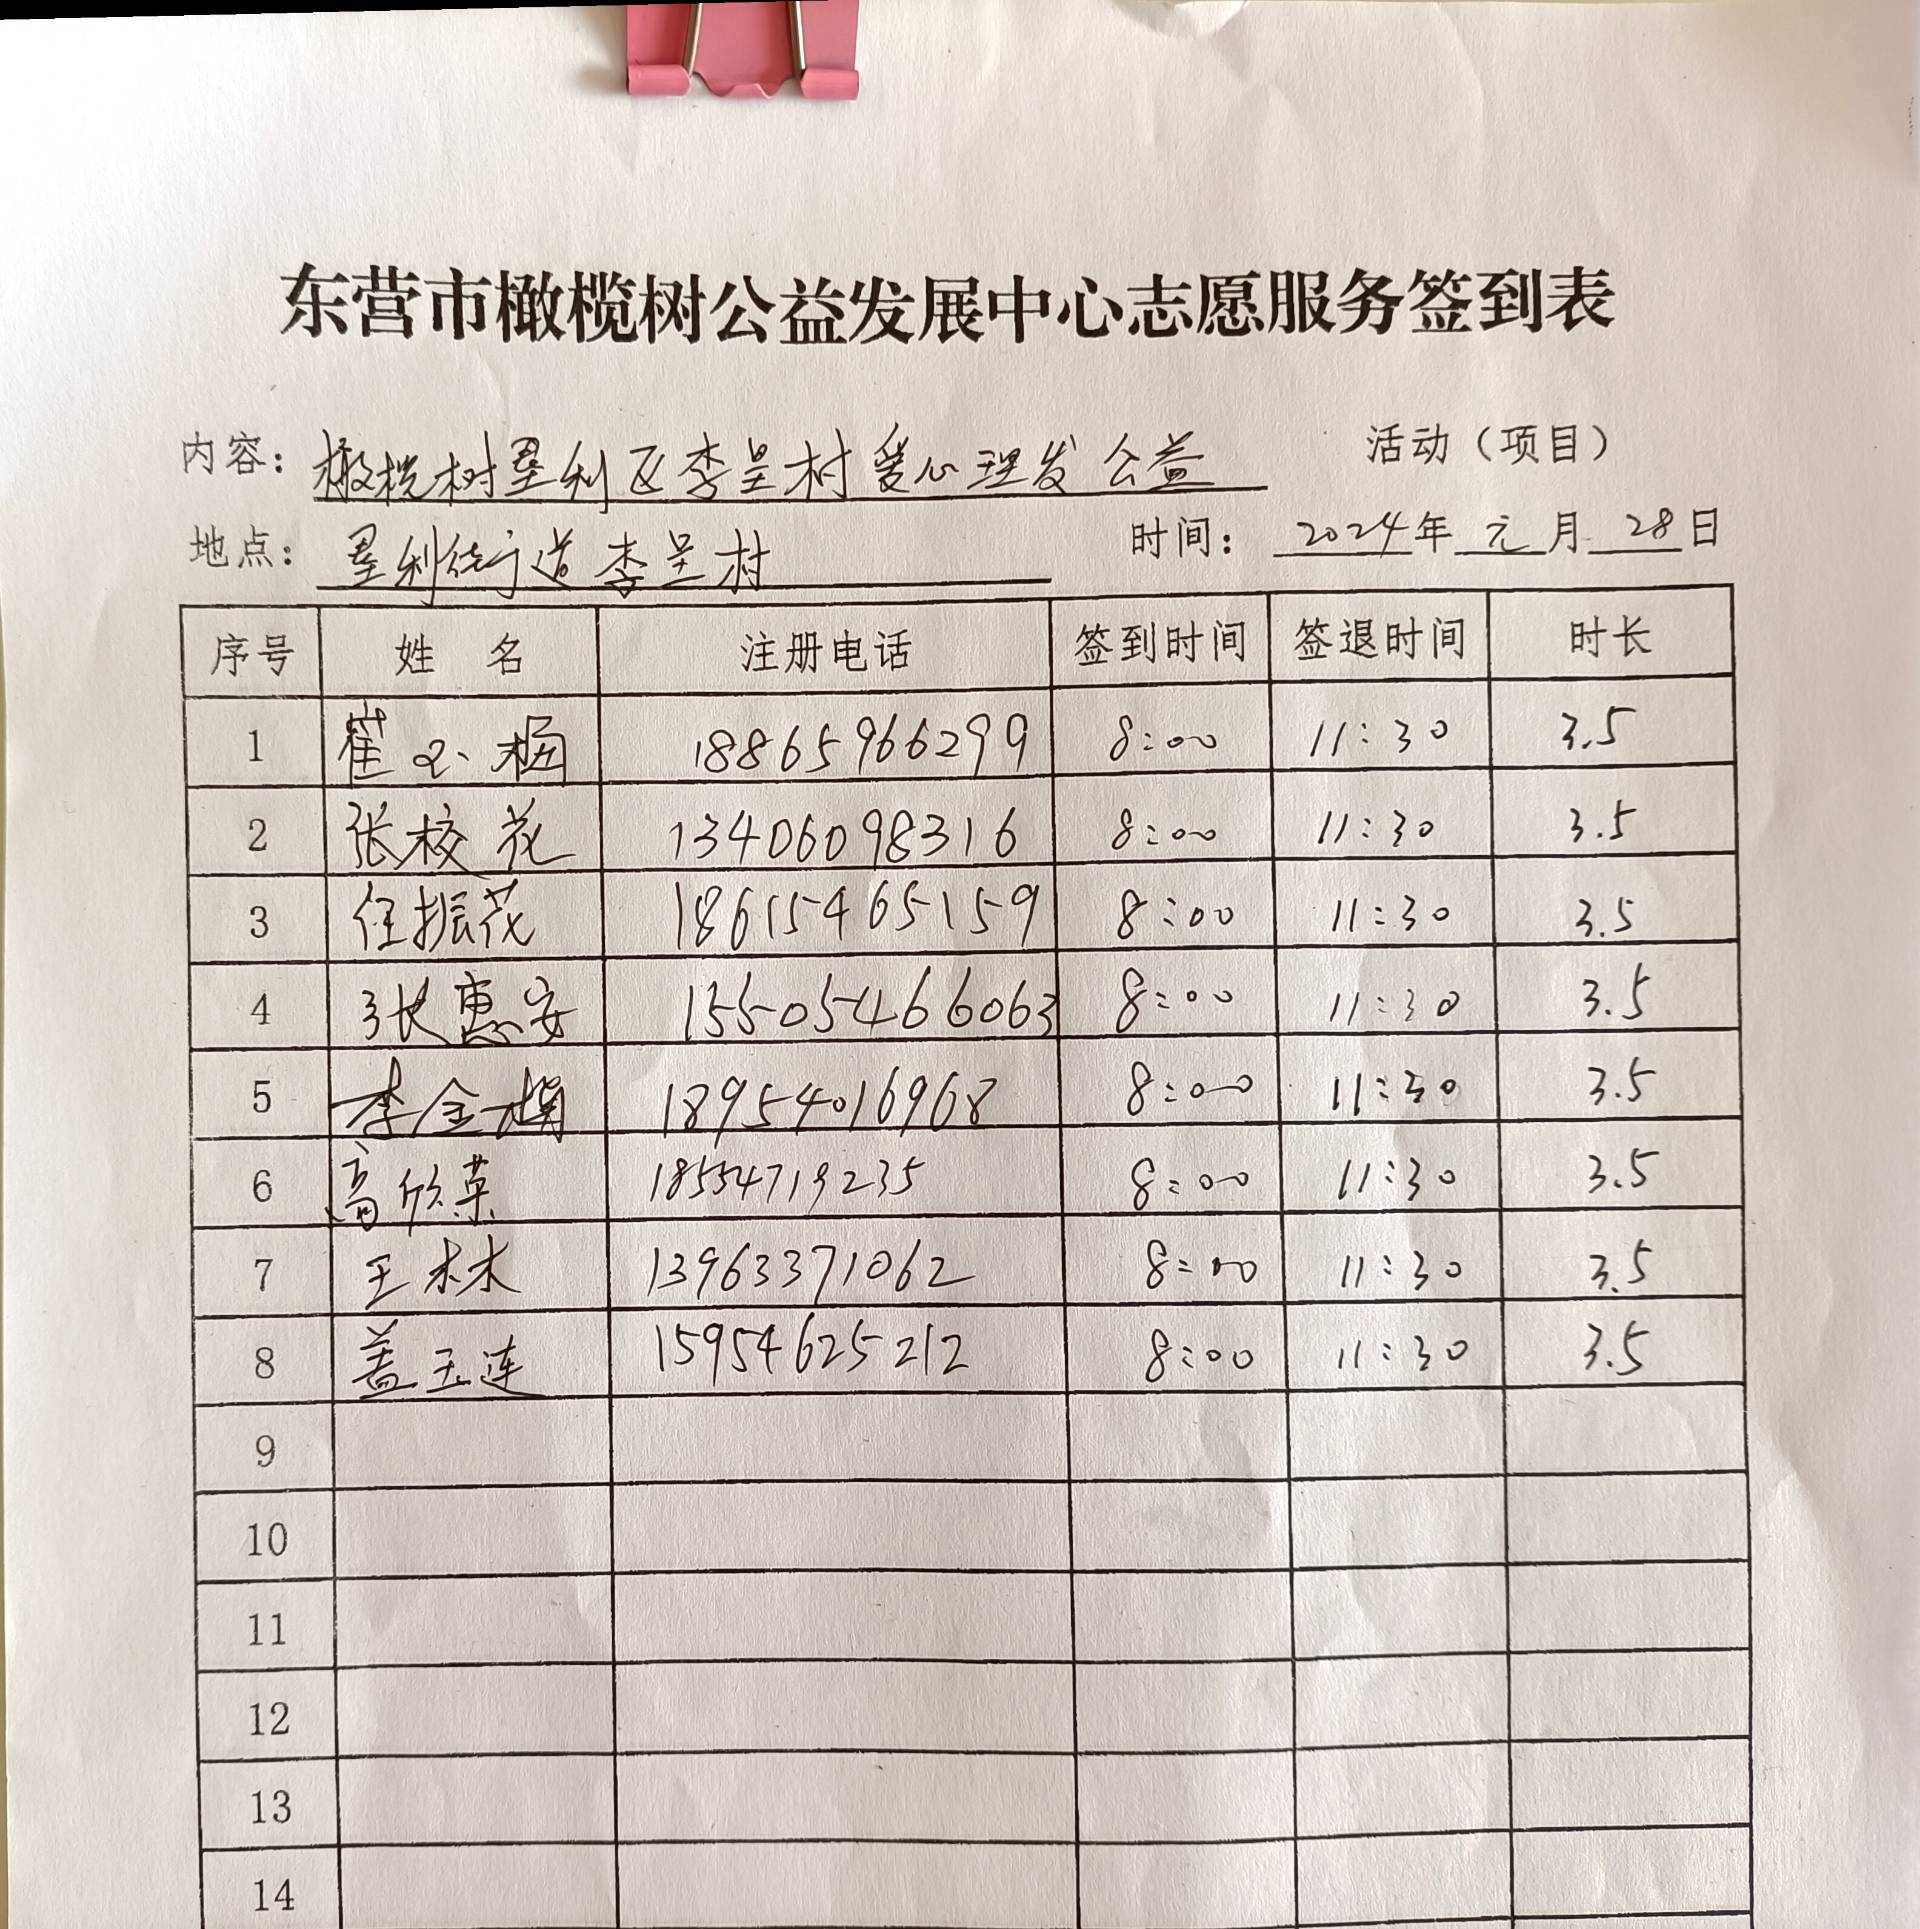 东营市橄榄树公益发展中心志愿服务签到表
内容：橄榄树垦利区李呈村爱心理发公益 活动（项目）
地点：垦利街道李呈村 时间：2024年元月28日
序号 姓名 注册电话 签到时间 签退时间 时长
1 崔 18865966299 8:00 11:30 3.5
2 张校花 13406098316 8:00 11:30 3.5
3 任振花 18615465159 8:00 11:30 3.5
4 张惠安 15505466063 8:00 11:30 3.5
5 李金娟 18954016968 8:00 11:30 3.5
6 高欣荣 18554719235 8:00 11:30 3.5
7 王林 13963371062 8:00 11:30 3.5
8 盖玉连 15954625212 8:00 11:30 3.5
9
10
11
12
13
14